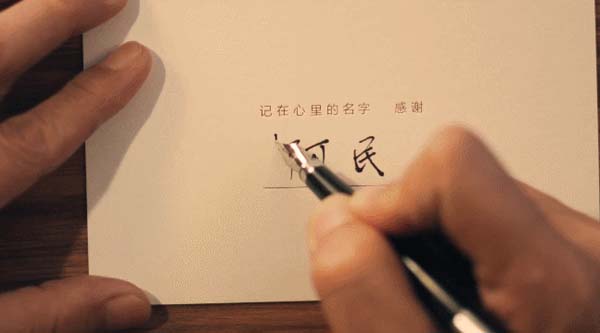 记在心里的名字 感谢
阿民